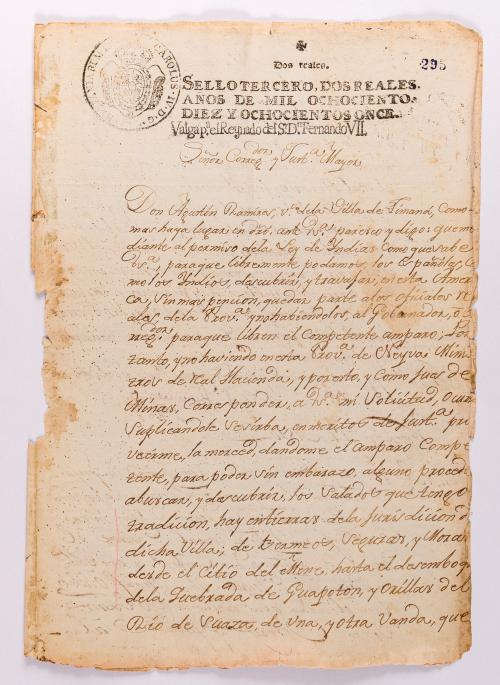 CAROLUS · IV · D · G ·
✠
Dos reales.
295
SELLO TERCERO, DOS REALES.
AÑOS DE MIL OCHOCIENTO.
DIEZ Y OCHOCIENTOS ONCE.
Valga pa. el Reynado del S.D. Fernando VII.
Señor Correg.dor y Just.a Mayor
Don Agustín Ramires, v.o de la Villa de Timaná, Como
mas haya lugar en dro. ante Vs.a paresco y digo: que me
diante al permiso dela Ley de Yndias Como que sabe
Vs.a, para que libremente podamos, los Españoles, Co
mo los Yndios, descubrir, y travajar, en esta Ameri
ca, Sin mas pencion, que dar parte alos ofiziales R
ales, de la Prov.a y no habiendolos, al Gobernador, o Co
rreg.dor para que libren el Competente amparo; Por
tanto, y no haviendo en esta Prov.a de Neyva Minis
tros de Real Hacienda, y por esto, y Como Jues de
Minas, Corresponder, a Vs.a mi Solicitud, Ocurro
Suplicandole Se sirba, en meritos de Just.a pro
veerme, la merced, dandome el amparo Compe
tente, para poder sin embarazo, alguno proced
a buscar, y descubrir, los Salados que tengo
tradicion, hay en tierras dela Jurisdicion d
dicha Villa; de Bermeos, Segurás, y Mora
desde el Citio del Mene, hasta el desemboq
dela Quebrada de Guapoton, y Orillas del
Rio de Suaza, de una, y otra Vanda, que